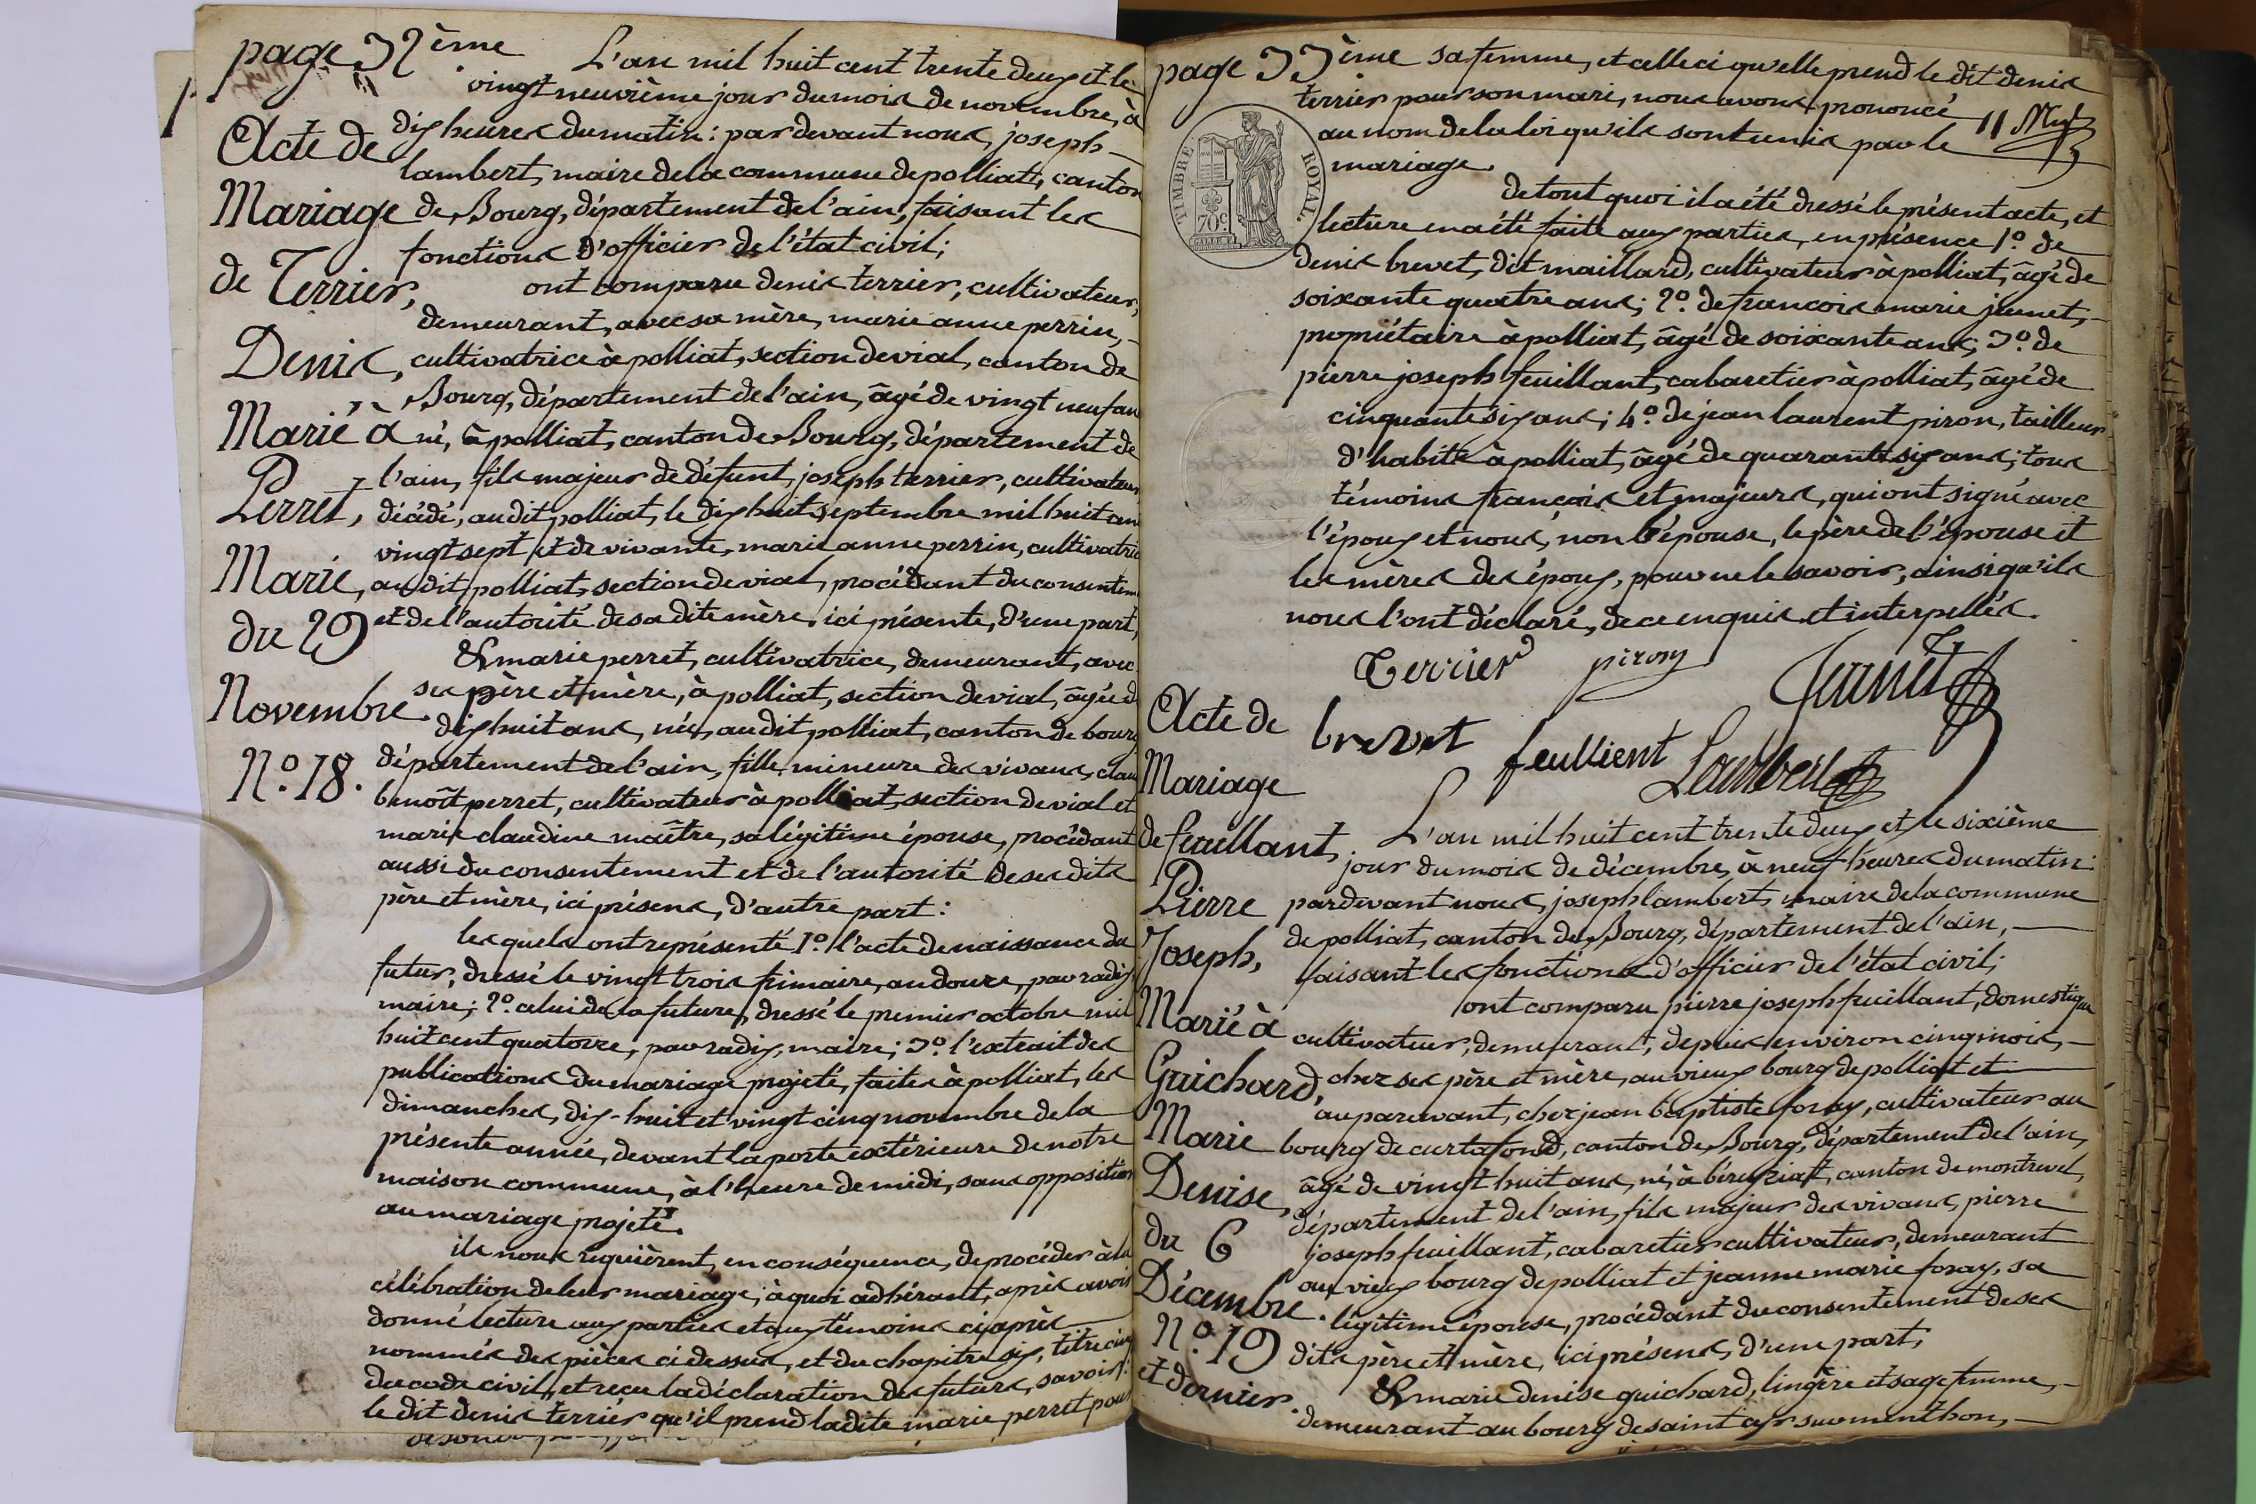 page 32ème
L'an mil huit cent trente deux et le
vingt neuvième jour du mois de novembre, à
dix heures du matin: par devant nous, joseph
lambert, maire de la commune de polliat, canton
de Bourg, département de l'ain, faisant les
fonctions d'officier de l'état civil;
ont comparu denis terrier, cultivateur,
demeurant, avec sa mère, marie anne perrin,
cultivatrice à polliat, section de vial, canton de
Bourg, département de l'ain, âgé de vingt neuf an
né, à polliat, canton de Bourg, département de
l'ain, fils majeur de défunt, joseph terrier, cultivateur
décédé, audit polliat, le dix huit septembre mil huit cen
vingt sept et de vivante, marie anne perrin, cultivatric
audit polliat, section de vial, procédant du consentem
et de l'autorité de sa dite mère, ici présente, d'une part,
Et marie perret, cultivatrice, demeurant, avec
ses père et mère, à polliat, section de vial, âgée d
dix huit ans, née, audit polliat, canton de bourg
département de l'ain, fille mineure des vivans, clau
benoît perret, cultivateur à polliat, section de vial et
marie claudine maître, sa légitime épouse, procédant
aussi du consentement et de l'autorité de ses dits
père et mère, ici présens, d'autre part:
les quels ont représenté 1º. l'acte de naissance du
futur, dressé le vingt trois frimaire, an douze, par radix
maire; 2º. celui de la future, dressé le premier octobre mil
huit cent quatorze, par radix, maire; 3º. l'extrait des
publications du mariage projeté, faites à polliat, les
dimanches, dix-huit et vingt cinq novembre de la
présente année, devant la porte extérieure de notre
maison commune, à l'heure de midi, sans opposition
au mariage projeté.
ils nous requièrent, en conséquence, de procéder à la
célébration de leur mariage; à quoi adhérant, après avoir
donné lecture aux parties et aux témoins ci après
nommés des pièces ci dessus, et du chapitre six, titre cinq
du code civil, et reçu la déclaration des futurs, savoir:
le dit denis terrier qu'il prend ladite marie perret pour
Acte de
Mariage
de Terrier,
Denis,
Marié à
Perret,
Marie,
du 29
Novembre.
Nº. 18.
page 33ème
sa femme, et celle ci qu'elle prend le dit denis
terrier pour son mari, nous avons prononcé
au nom de la loi qu'ils sont unis par le
mariage.
TIMBRE ROYAL.
70c
de tout quoi il a été dressé le présent acte, et
lecture en a été faite aux parties, en présence 1º. de
denis brevet, dit maillard, cultivateur à polliat, âgé de
soixante quatre ans; 2º. de francois marie jeunet,
propriétaire à polliat, âgé de soixante ans; 3º. de
pierre joseph feuillant, cabaretier à polliat, âgé de
cinquante six ans; 4º. de jean laurent piron, tailleur
d'habits à polliat, âgé de quarante six ans; tous
témoins francais et majeurs, qui ont signé avec
l'époux et nous, non l'épouse, le père de l'épouse et
les mères des époux, pour ne le savoir, ainsi qu'ils
nous l'ont déclaré, de ce enquis et interpellés.
Terrier piron Jeunet
brevet feullient Lambert
Acte de
Mariage
de feuillant,
Pierre
Joseph,
Marié à
Guichard,
Marie
Denise,
du 6
Décembre.
Nº. 19
et dernier.
L'an mil huit cent trente deux et le sixième
jour du mois de décembre, à neuf heures du matin:
par devant nous, joseph lambert, maire de la commune
de polliat, canton de Bourg, département de l'ain,
faisant les fonctions d'officier de l'état civil;
ont comparu pierre joseph feuillant, domestique
cultivateur, demeurant, depuis environ cinq mois,
chez ses père et mère, au vieux bourg de polliat et
auparavant, chez jean baptiste foray, cultivateur au
bourg de curtafond, canton de Bourg, département de l'ain,
âgé de vingt huit ans, né, à béreyziat, canton de montrevel,
département de l'ain, fils majeur des vivans, pierre
joseph feuillant, cabaretier cultivateur, demeurant
au vieux bourg de polliat et jeanne marie foray, sa
légitime épouse, procédant du consentement de ses
dits père et mère, ici présens, d'une part;
Et marie denise guichard, lingère et sage femme,
demeurant au bourg de saint cyr sur menthon,